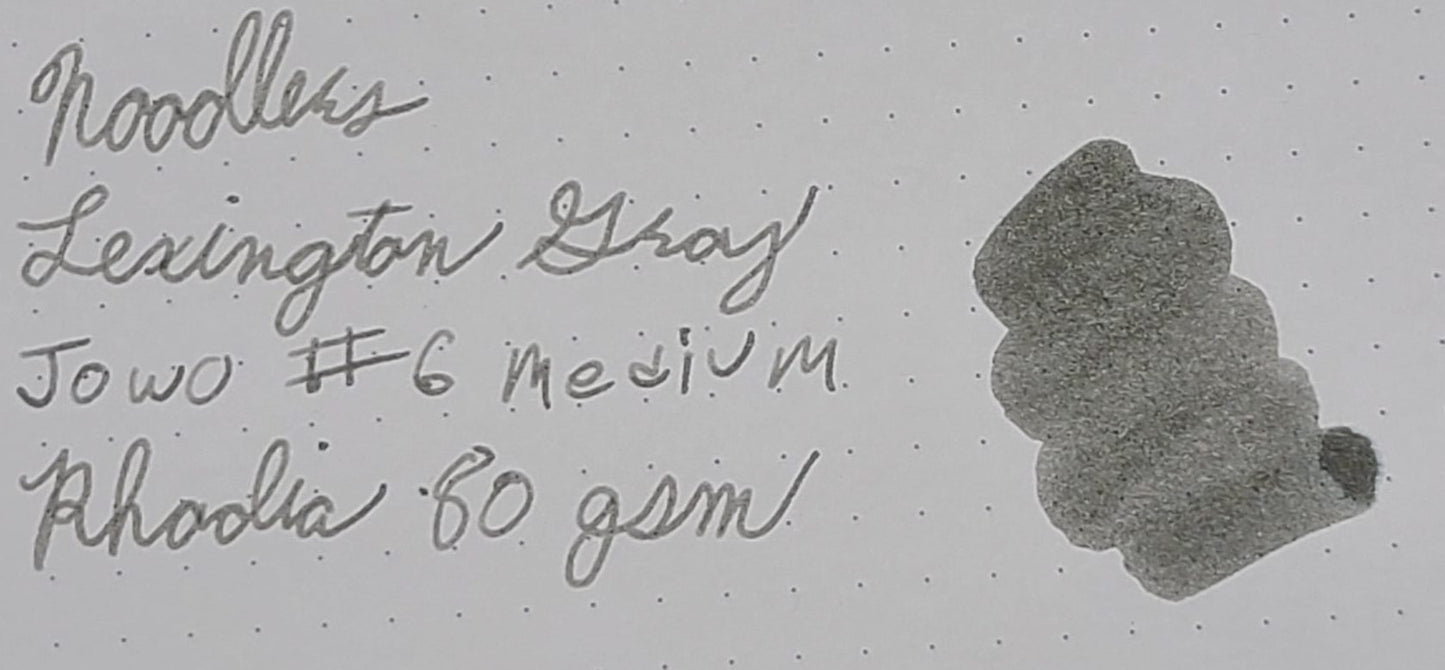 Noodlers
Lexington Gray
Jowo #6 Medium
Rhodia 80 gsm